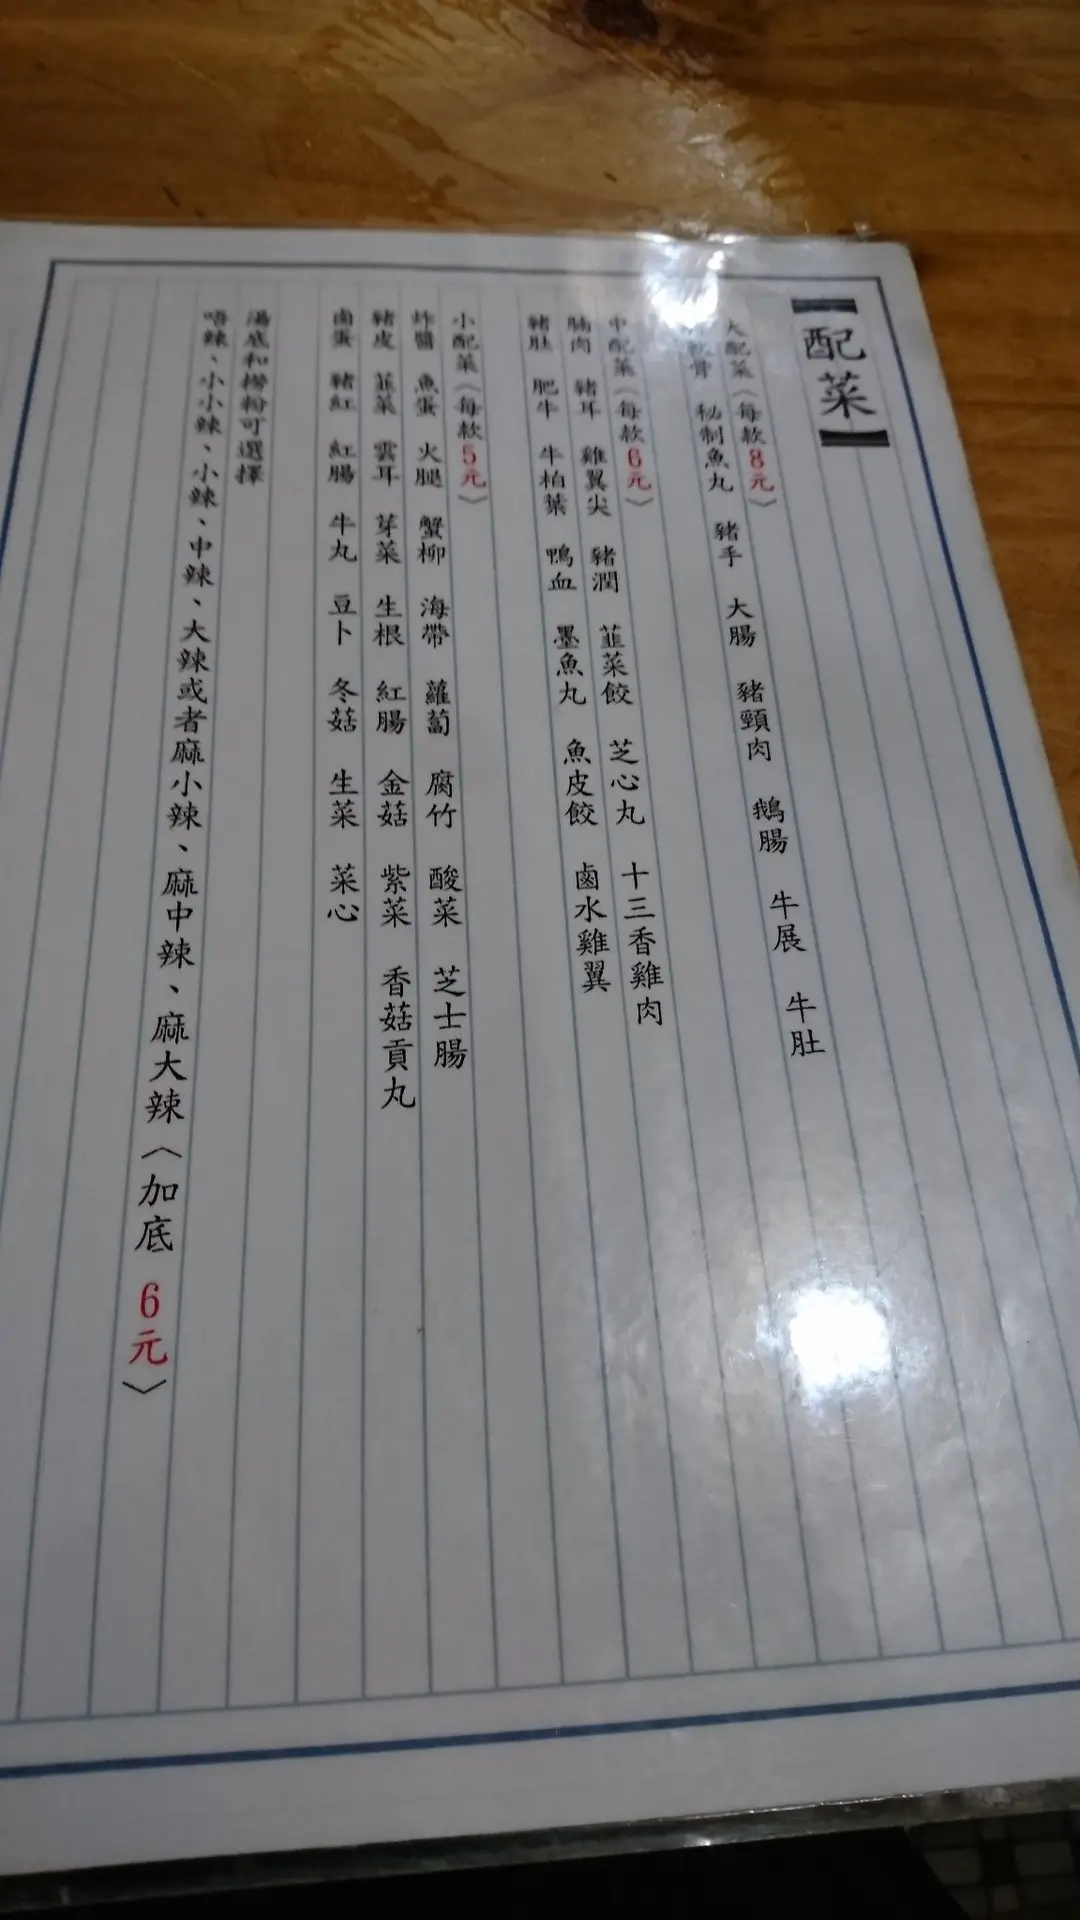 【配菜】
大配菜〈每款8元〉
軟骨 秘制魚丸 豬手 大腸 豬頸肉 鵝腸 牛展 牛肚
中配菜〈每款6元〉
腩肉 豬耳 雞翼尖 豬潤 韮菜餃 芝心丸 十三香雞肉
豬肚 肥牛 牛柏葉 鴨血 墨魚丸 魚皮餃 鹵水雞翼
小配菜〈每款5元〉
炸醬 魚蛋 火腿 蟹柳 海帶 蘿蔔 腐竹 酸菜 芝士腸
豬皮 韮菜 雲耳 芽菜 生根 紅腸 金菇 紫菜 香菇貢丸
鹵蛋 豬紅 紅腸 牛丸 豆卜 冬菇 生菜 菜心
湯底和撈粉可選擇
唔辣、小小辣、小辣、中辣、大辣或者麻小辣、麻中辣、麻大辣〈加底 6元〉